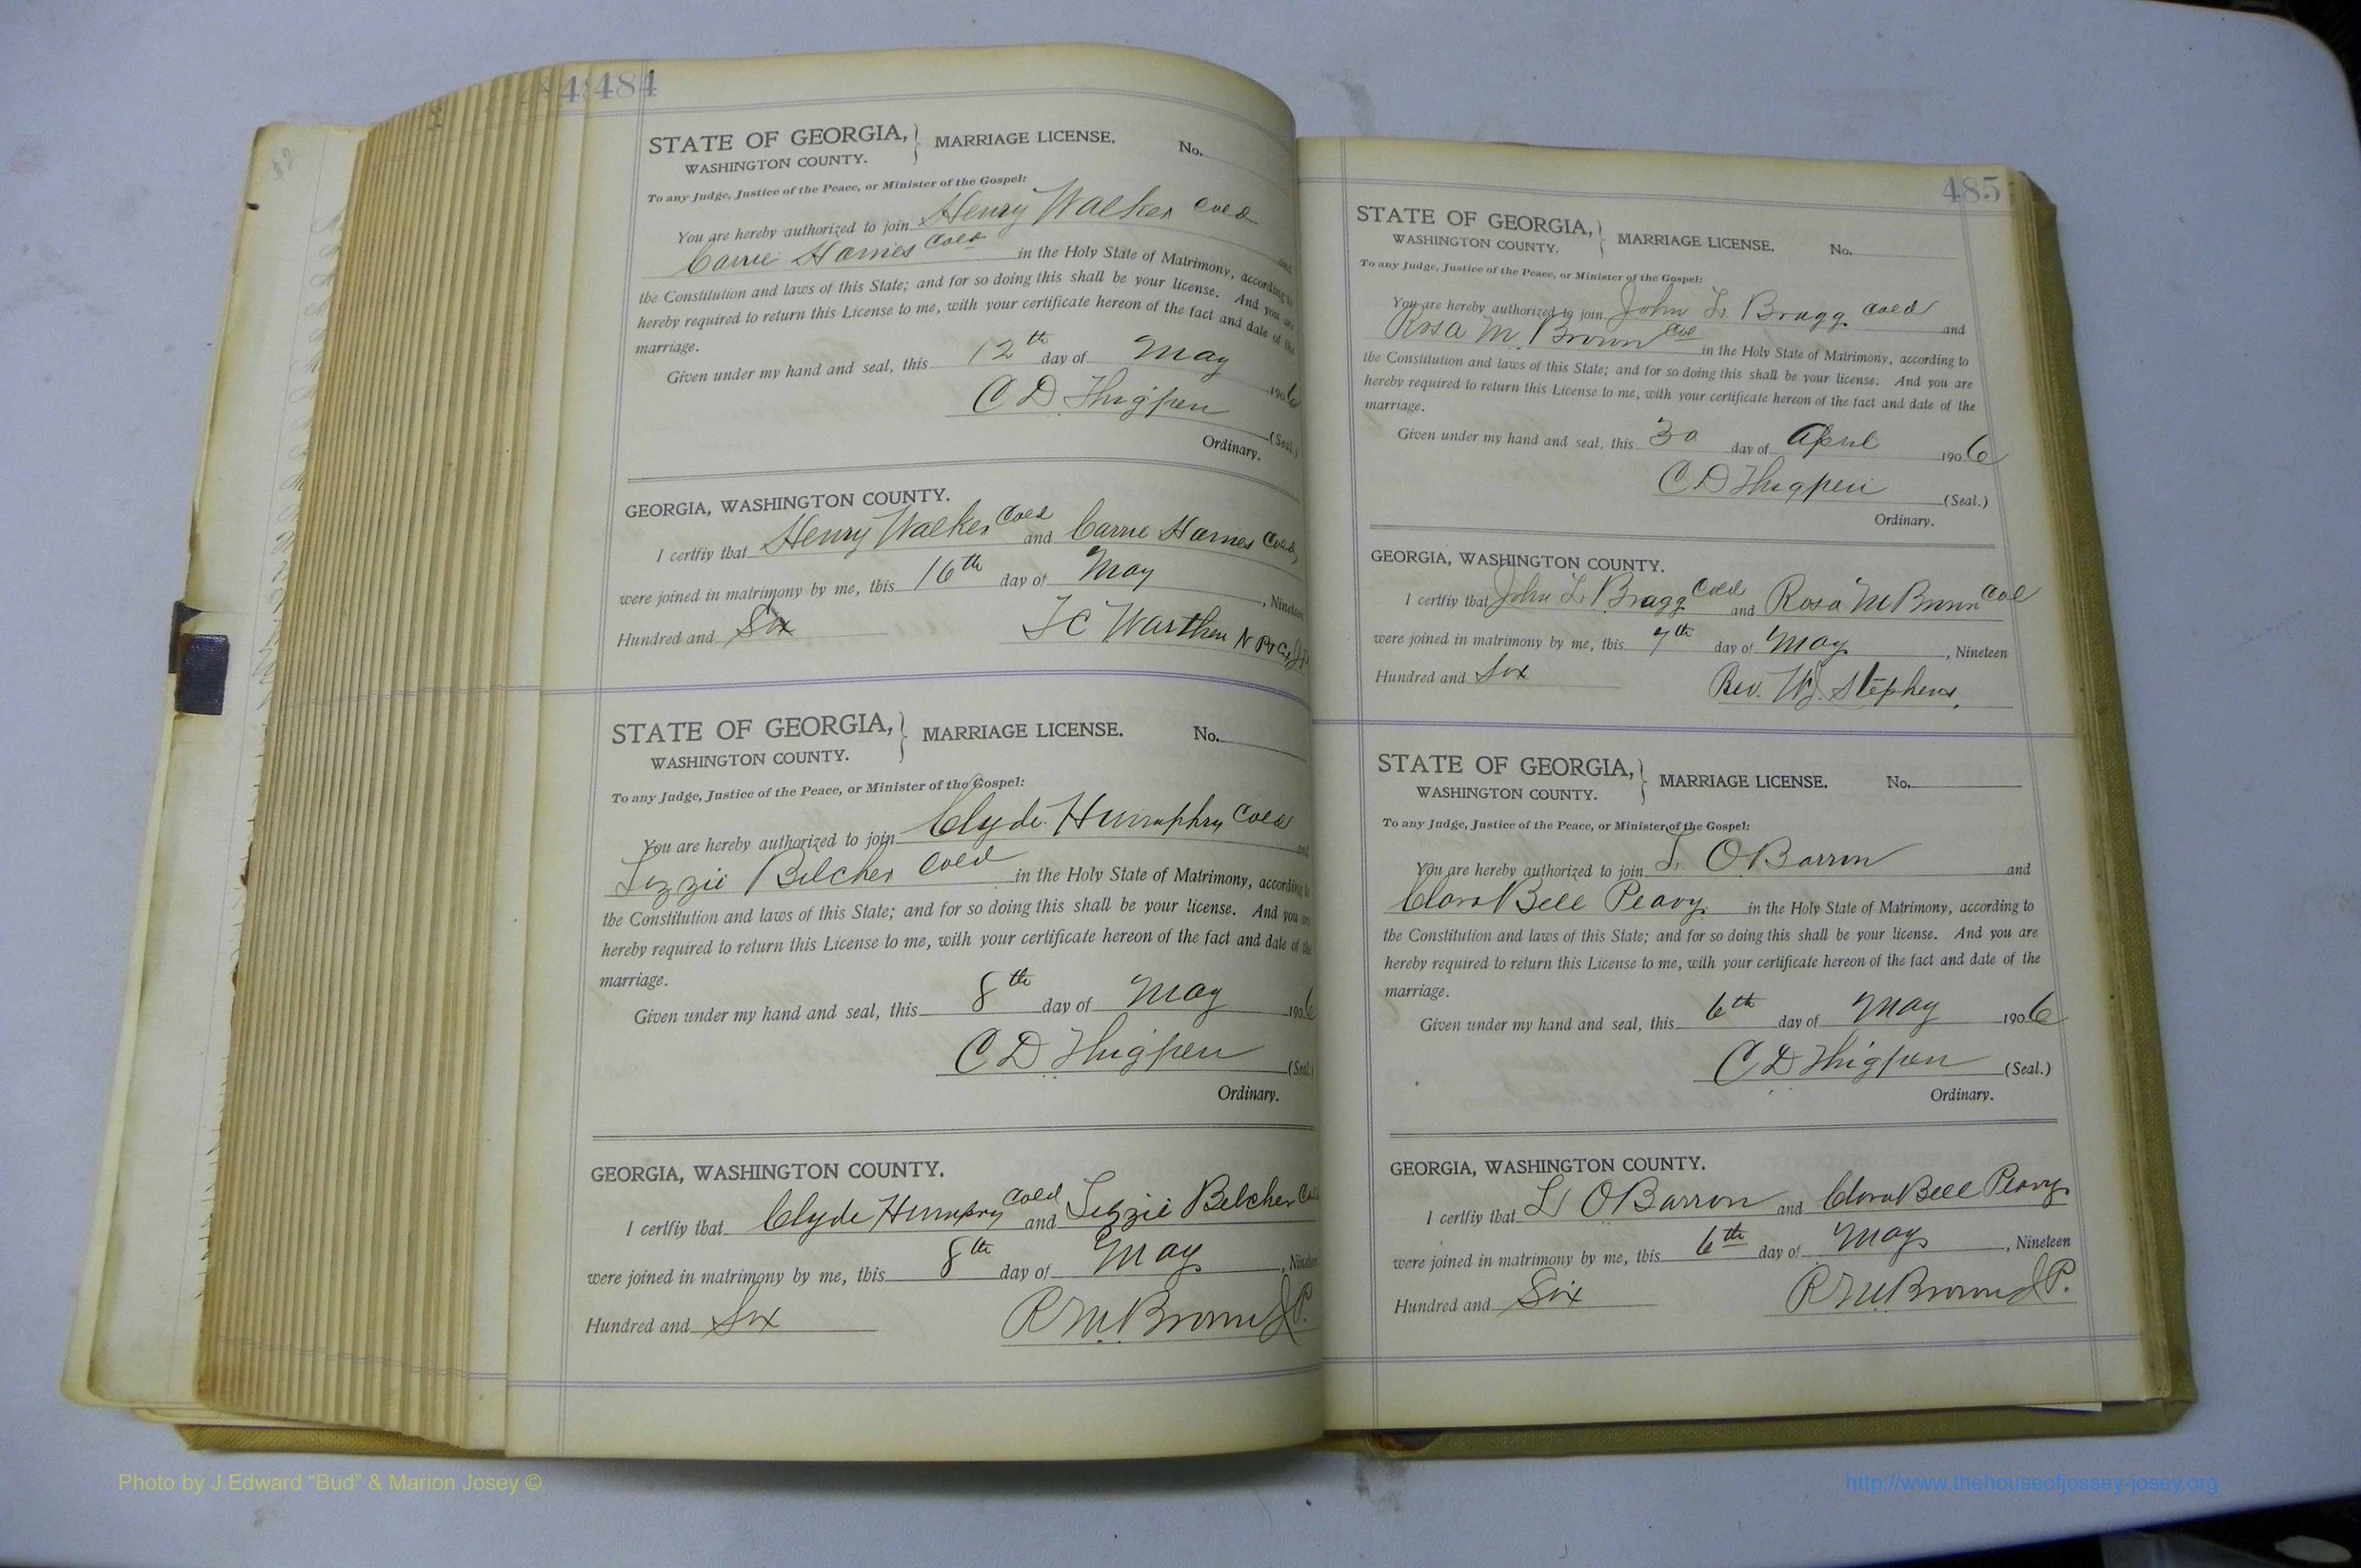 484
STATE OF GEORGIA, MARRIAGE LICENSE. No.
WASHINGTON COUNTY.
To any Judge, Justice of the Peace, or Minister of the Gospel:
You are hereby authorized to join Henry Walker Cold and
Carrie Harris Cold in the Holy State of Matrimony, according to
the Constitution and laws of this State; and for so doing this shall be your license. And you are
hereby required to return this License to me, with your certificate hereon of the fact and date of the
marriage.
Given under my hand and seal, this 12th day of May 1906
C D Thigpen (Seal.)
Ordinary.
GEORGIA, WASHINGTON COUNTY.
I certfiy that Henry Walker Cold and Carrie Harris Cold
were joined in matrimony by me, this 16th day of May, Nineteen
Hundred and Six T C Warthen N P
STATE OF GEORGIA, MARRIAGE LICENSE. No.
WASHINGTON COUNTY.
To any Judge, Justice of the Peace, or Minister of the Gospel:
You are hereby authorized to join Clyde Humphry Cold and
Lizzie Belcher Cold in the Holy State of Matrimony, according to
the Constitution and laws of this State; and for so doing this shall be your license. And you are
hereby required to return this License to me, with your certificate hereon of the fact and date of the
marriage.
Given under my hand and seal, this 8th day of May 1906
C D Thigpen (Seal.)
Ordinary.
GEORGIA, WASHINGTON COUNTY.
I certfiy that Clyde Humpry Cold and Lizzie Belcher Cold
were joined in matrimony by me, this 8th day of May, Nineteen
Hundred and Six R M Brown J P.
485
STATE OF GEORGIA, MARRIAGE LICENSE. No.
WASHINGTON COUNTY.
To any Judge, Justice of the Peace, or Minister of the Gospel:
You are hereby authorized to join John L. Bragg Cold and
Rosa M. Brown Col in the Holy State of Matrimony, according to
the Constitution and laws of this State; and for so doing this shall be your license. And you are
hereby required to return this License to me, with your certificate hereon of the fact and date of the
marriage.
Given under my hand and seal, this 30 day of April 1906
C D Thigpen (Seal.)
Ordinary.
GEORGIA, WASHINGTON COUNTY.
I certfiy that John L. Bragg Cold and Rosa M Brown Col
were joined in matrimony by me, this 7th day of May, Nineteen
Hundred and Six Rev. W. J. Stephens.
STATE OF GEORGIA, MARRIAGE LICENSE. No.
WASHINGTON COUNTY.
To any Judge, Justice of the Peace, or Minister of the Gospel:
You are hereby authorized to join L. O Barron and
Clara Bell Peavy in the Holy State of Matrimony, according to
the Constitution and laws of this State; and for so doing this shall be your license. And you are
hereby required to return this License to me, with your certificate hereon of the fact and date of the
marriage.
Given under my hand and seal, this 6th day of May 1906
C D Thigpen (Seal.)
Ordinary.
GEORGIA, WASHINGTON COUNTY.
I certfiy that L O Barron and Clara Bell Peavy
were joined in matrimony by me, this 6th day of May, Nineteen
Hundred and Six R M Brown J P.
Photo by J Edward “Bud” & Marion Josey ©
http://www.thehouseofjossey-josey.org